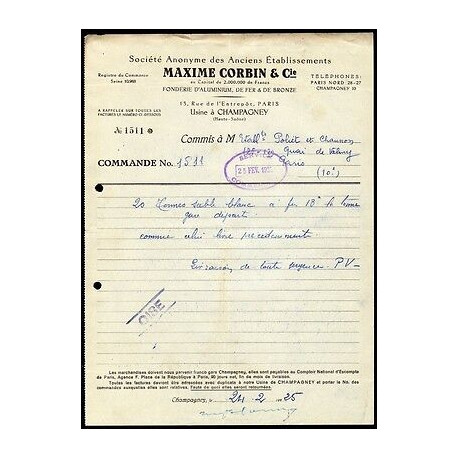 Société Anonyme des Anciens Établissements
Registre du Commerce
Seine 10968
MAXIME CORBIN & Cie
au Capital de 2.000.000 de Francs
FONDERIE D'ALUMINIUM, DE FER & DE BRONZE
TÉLÉPHONES:
PARIS NORD 26-27
CHAMPAGNEY 10
15, Rue de l'Entrepôt, PARIS
Usine à CHAMPAGNEY
(Haute-Saône)
A RAPPELER SUR TOUTES LES
FACTURES LE NUMÉRO CI-DESSOUS
№ 1511
Commis à M Etabl^ts Poliet et Chausson
Quai de Valmy
Paris
(10e)
COMMANDE No. 1511
SERVICE
25 FEV.
20 Tonnes sable blanc à frs 18 la tonne
gare départ
comme celui livré précédemment
Livraison de toute urgence P.V.
OISE
Les marchandises doivent nous parvenir franco gare Champagney, elles sont payables au Comptoir National d'Escompte
de Paris, Agence F. Place de la République à Paris, 90 jours net, fin de mois de livraison.
Toutes les factures devront être adressées avec duplicata à notre Usine de CHAMPAGNEY et porter le No. des
commandes auxquelles elles sont relatives. Faute de quoi elles seront retournées.
Champagney, 24-2 1925